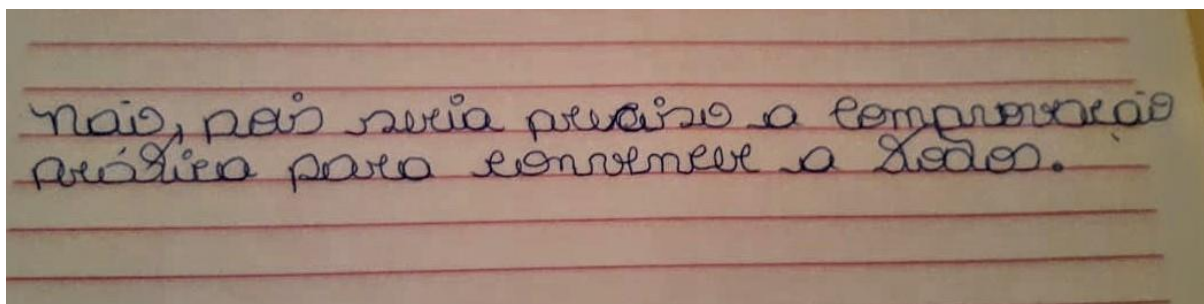 Não, pois seria preciso a comprovação
prática para convencer a todos.